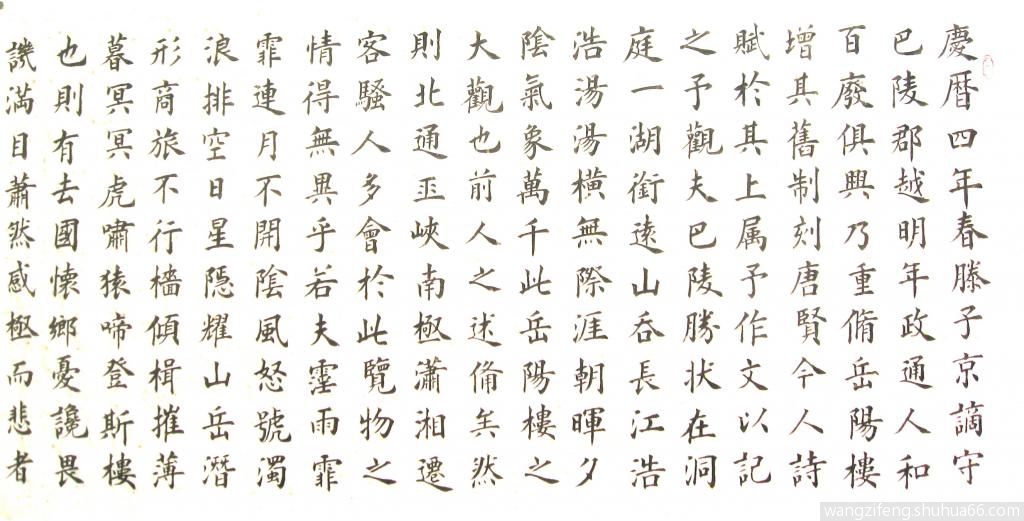 慶曆四年春滕子京謫守
巴陵郡越明年政通人和
百廢俱興乃重脩岳陽樓
增其舊制刻唐賢今人詩
賦於其上属予作文以記
之予觀夫巴陵勝状在洞
庭一湖銜遠山吞長江浩
浩湯湯橫無際涯朝暉夕
陰氣象萬千此岳陽樓之
大觀也前人之述俻矣然
則北通巫峽南極瀟湘遷
客騷人多會於此覽物之
情得無異乎若夫霪雨霏
霏連月不開陰風怒號濁
浪排空日星隱耀山岳潛
形商旅不行檣傾楫摧薄
暮冥冥虎嘯猿啼登斯樓
也則有去國懷鄉憂讒畏
譏滿目蕭然感極而悲者
wangzifeng.shuhua66.com